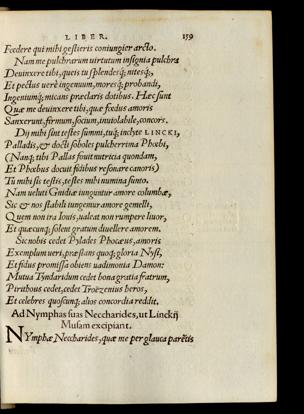 LIBER. 159
Foedere qui mihi gestieris coniungier arcto.
Nam me pulchrarum virtutum insignia pulchra
Deuinxere tibi, queis tu splendesq́; nitesq́;,
Et pectus verè ingenuum, moresq́; probandi,
Ingeniumq́; micans præclaris dotibus. Hæc sunt
Quæ me deuinxere tibi, quæ fœdus amoris
Sanxerunt, firmum, socium, inuiolabile, concors.
Dij mihi sint testes summi, tuq́; inclyte LINCKI,
Palladis, & docti soboles pulcherrima Phœbi,
(Nanq́; tibi Pallas fouit nutricia quondam,
Et Phœbus docuit fidibus resonare canoris)
Tu mihi sis testis, testes mihi numina sunto.
Nam veluti Gnidiæ iunguntur amore columbæ,
Sic & nos stabili iungemur amore gemelli,
Quem non ira Iouis, valeat non rumpere liuor,
Et quæcunq́; solent gratum diuellere amorem.
Sic nobis cedet Pylades Phocæus, amoris
Exemplum veri, præstans quoq́; gloria Nysi,
Et fidus promissa obiens vadimonia Damon:
Mutua Tyndaridum cedet bona gratia fratrum,
Pirithous cedet, cedet Troezenius heros,
Et celebres quoscunq́; alios concordia reddit.
Ad Nymphas suas Neccharides, ut Linckij
Musam excipiant.
NYmphæ Neccharides, quæ me per glauca parētis